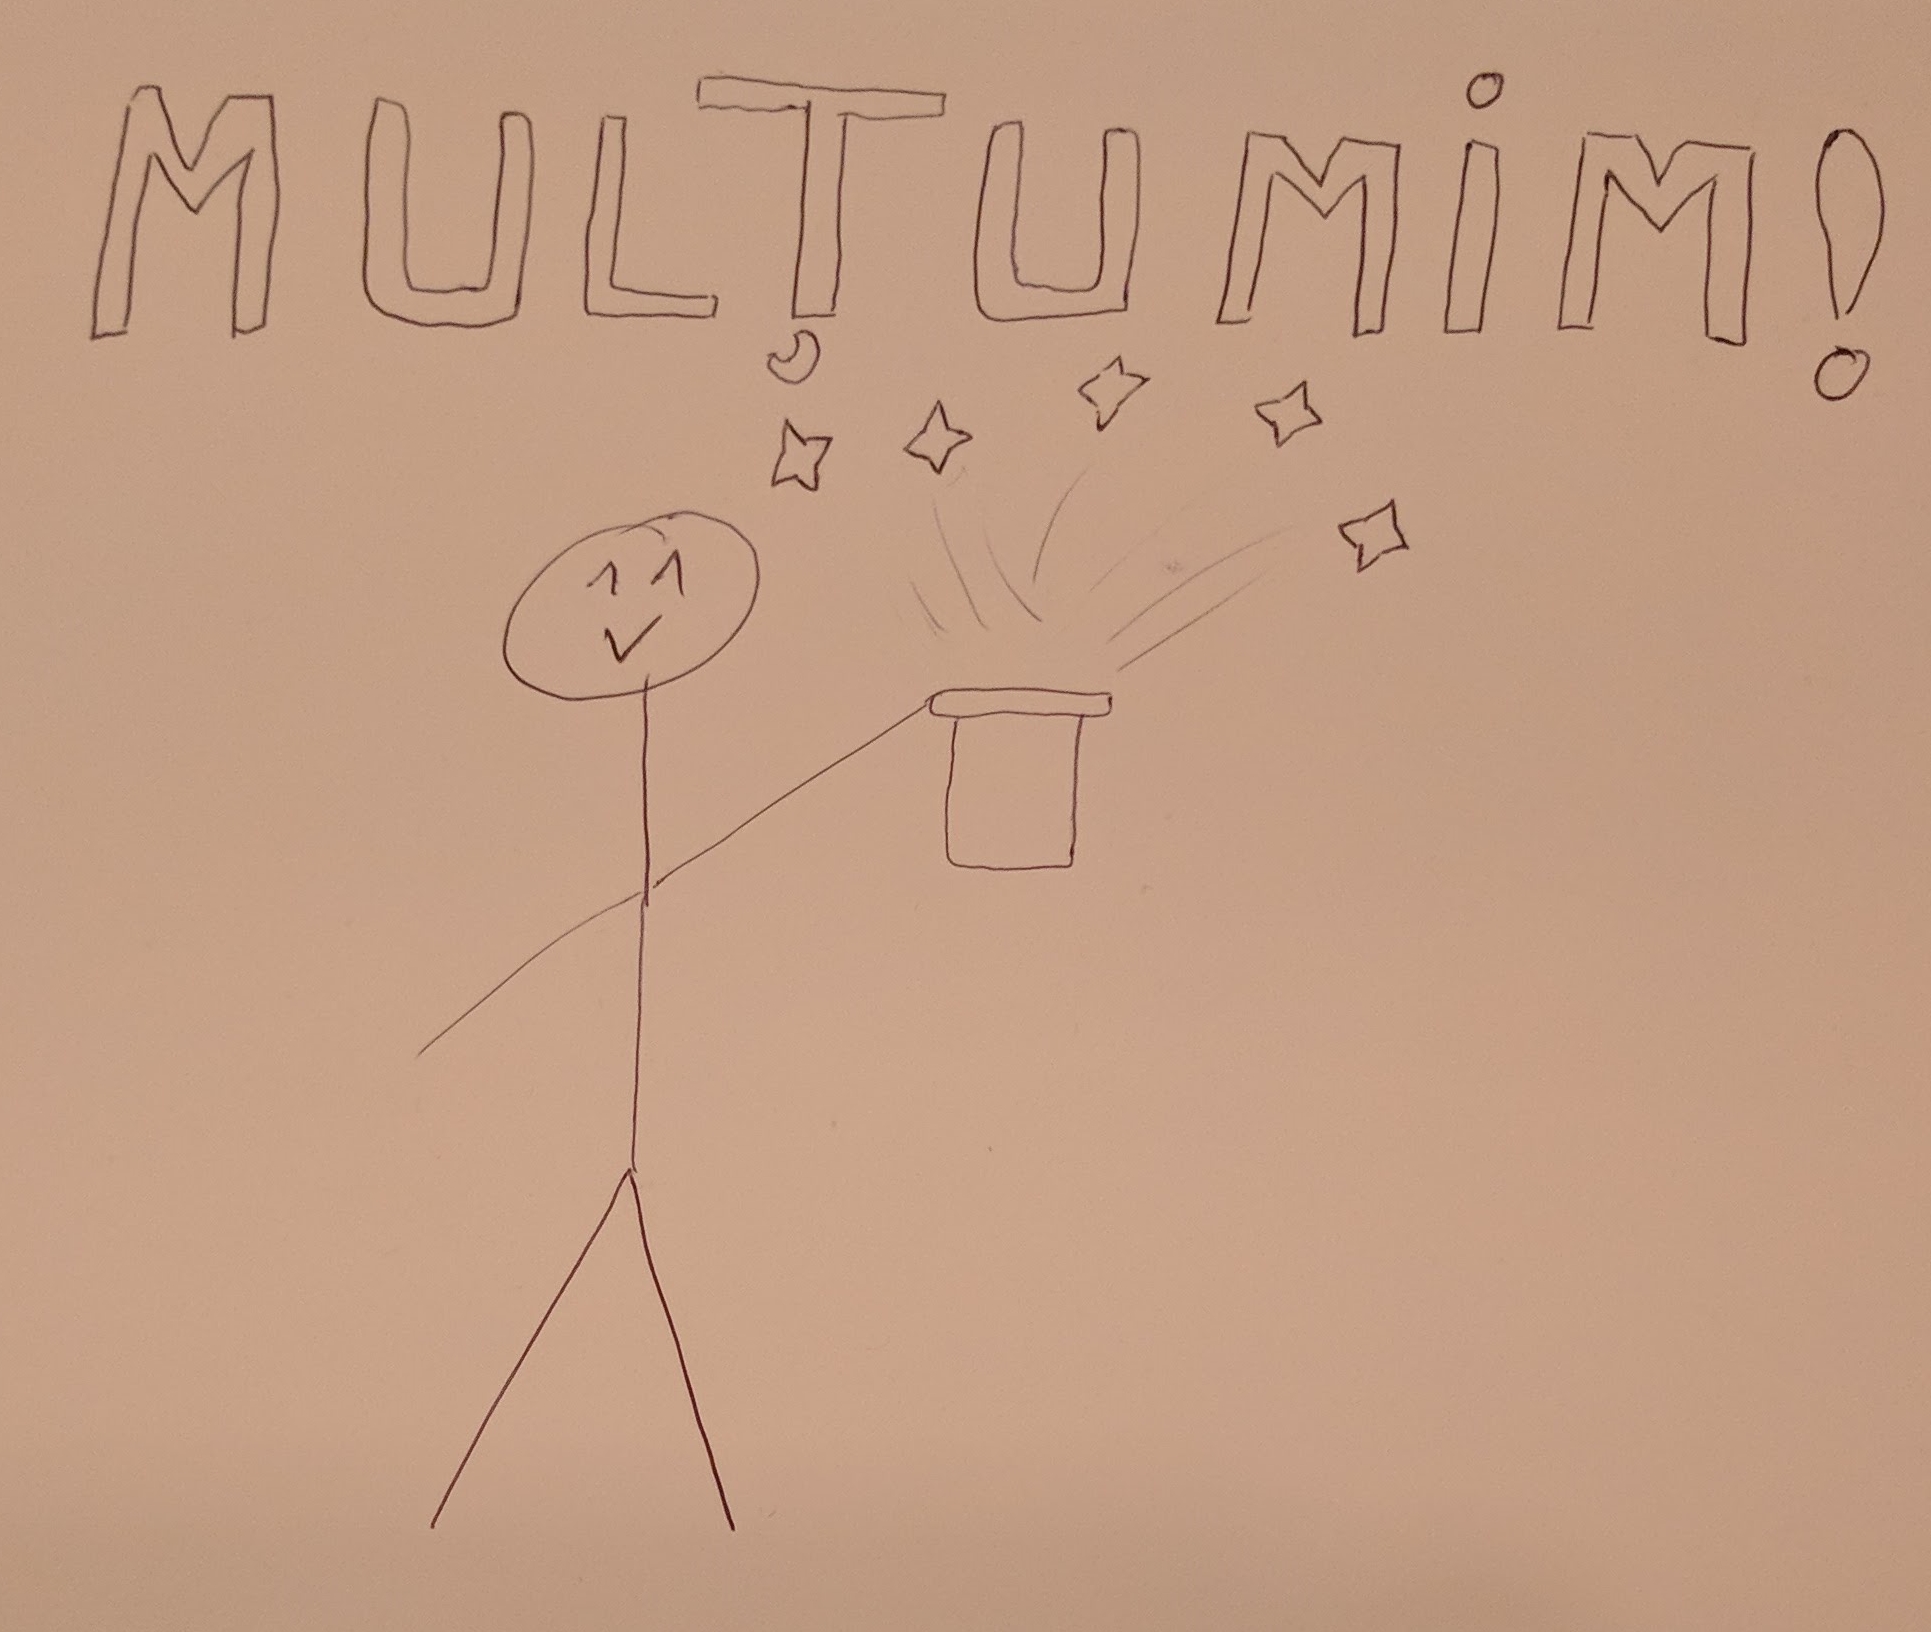 MULȚUMiM!